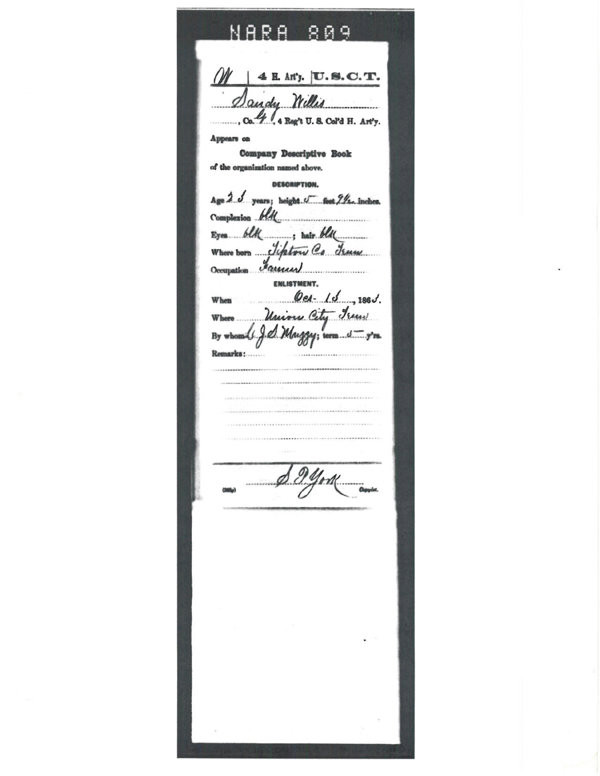 NARA 809
W | 4 H. Art'y. | U.S.C.T.
Sandy Willis
, Co. G, 4 Reg't U. S. Col'd H. Art'y.
Appears on
Company Descriptive Book
of the organization named above.
DESCRIPTION.
Age years; height 5 feet inches.
Complexion blk
Eyes blk ; hair blk
Where born Tipton Co Tenn
Occupation Farmer
ENLISTMENT.
When Oct 186
Where Union City Tenn
By whom J S Muzzy; term 5 y'rs.
Remarks:
S P York
Copyist.